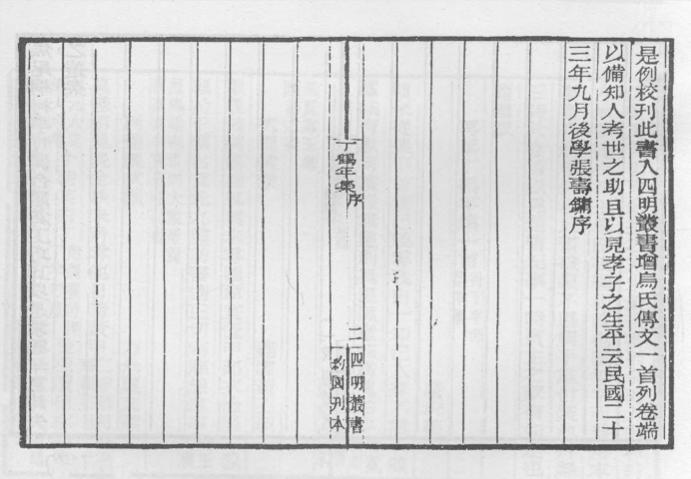 是例校刊此書入四明叢書增烏氏傳文一首列卷端
以備知人考世之助且以見孝子之生平云民國二十
三年九月後學張壽鏞序
丁鶴年集 序
二
四明叢書
約園刊本